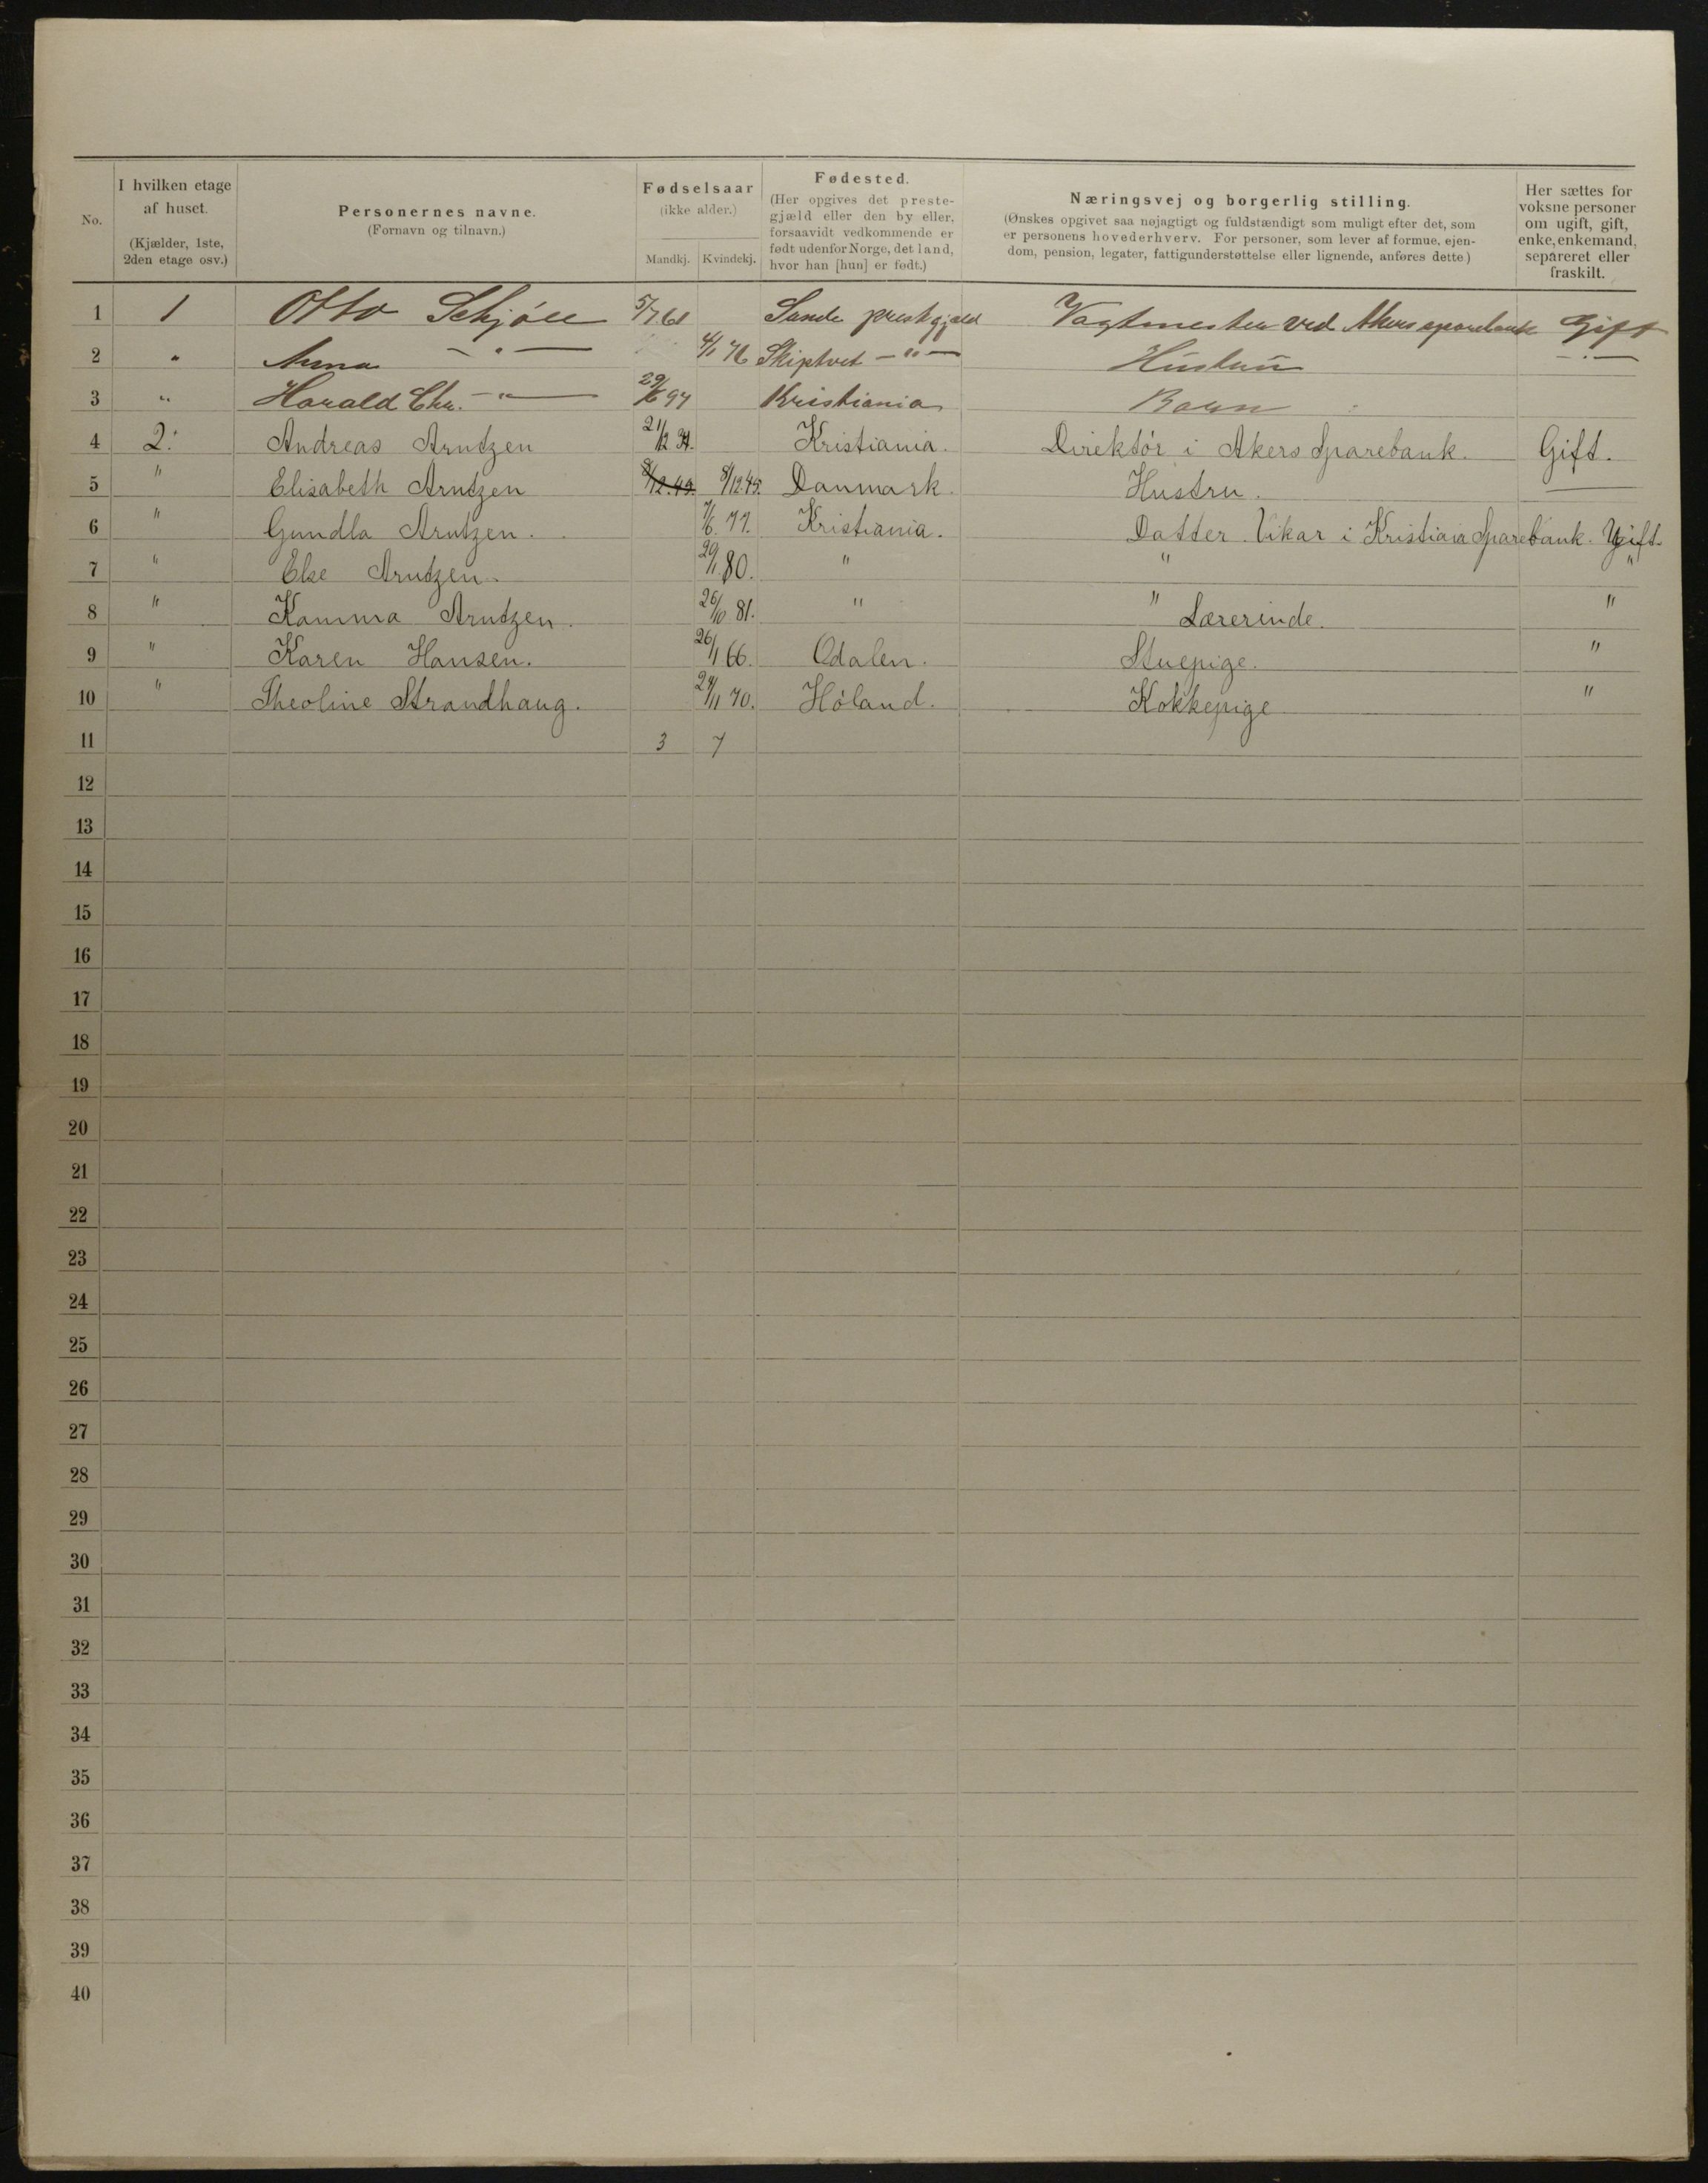 No.
I hvilken etage
af huset.
(Kjælder, 1ste,
2den etage osv.)
Personernes navne.
(Fornavn og tilnavn.)
Fødselsaar
(ikke alder.)
Mandkj. Kvindekj.
Fødested.
(Her opgives det preste-
gjæld eller den by eller,
forsaavidt vedkommende er
født udenfor Norge, det land,
hvor han [hun] er født.)
Næringsvej og borgerlig stilling.
(Ønskes opgivet saa nøjagtigt og fuldstændigt som muligt efter det, som
er personens hovederhverv. For personer, som lever af formue, ejen-
dom, pension, legater, fattigunderstøttelse eller lignende, anføres dette.)
Her sættes for
voksne personer
om ugift, gift,
enke, enkemand,
separeret eller
fraskilt.
1 1 Otto Schjöll 5/7 61 Sande prestgjæld Vagtmester ved Akers sparebank Gift
2 " Anna — " — 4/1 76 Skiptvet — " — Hustru — " —
3 " Harald Chr. — " — 29/6 97 Kristiania Barn
4 2. Andreas Arntzen 21/12 34. Kristiania. Direktør i Akers Sparebank. Gift.
5 " Elisabeth Arntzen 8/12.45. 8/12 45. Danmark. Hustru. —
6 " Gundla Arntzen. 7/6. 77. Kristiania. Datter. Vikar i Kristiania Sparebank. Ugift.
7 " Else Arntzen. 29/1 80. " " "
8 " Kamma Arntzen. 26/10 81. " " Lærerinde. "
9 " Karen Hansen. 26/1 66. Odalen. Stuepige. "
10 " Theoline Strandhaug. 24/11 70. Høland. Kokkepige "
11 3 7
12
13
14
15
16
17
18
19
20
21
22
23
24
25
26
27
28
29
30
31
32
33
34
35
36
37
38
39
40